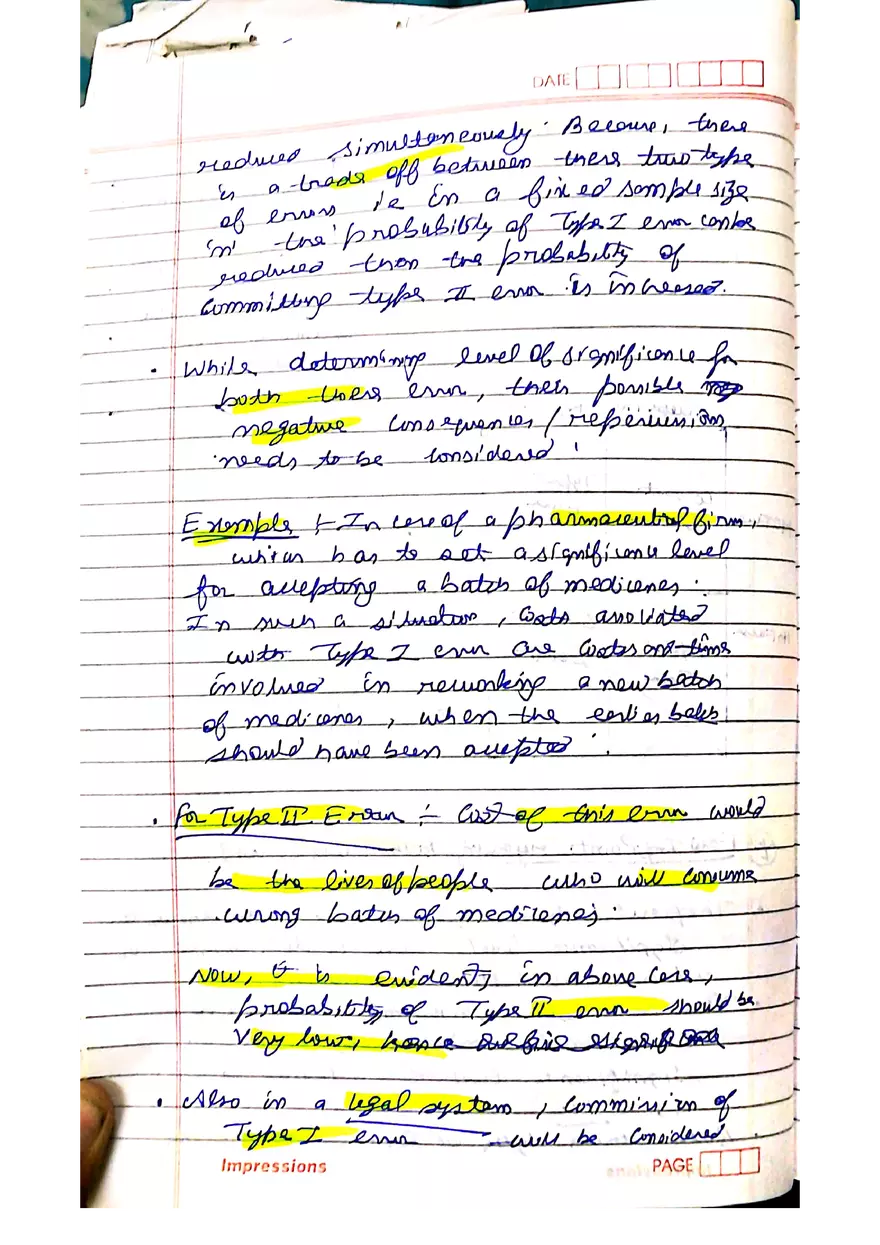 DATE
reduced simultaneously. Because, there
is a trade off between these two type
of errors ie in a fixed sample size
'n' the probability of Type I error can be
reduced then the probability of
committing type II error is increased.
• While determining level of significance for
both these error, their possible
negative consequences / repercussions
needs to be considered.
Example :- In case of a pharmaceutical firm,
which has to set a significance level
for accepting a batch of medicenes.
In such a situation, costs associated
with Type I error are costs and time
involved in reworking a new batch
of medicenes, when the earlier batch
should have been accepted.
• For Type II Error :- Cost of this error would
be the lives of people who will consume
wrong batch of medicenes.
Now, it is evident, in above case,
probability of Type II error should be
Very low, hence
• Also in a legal system, commission of
Type I error will be considered
Impressions
PAGE